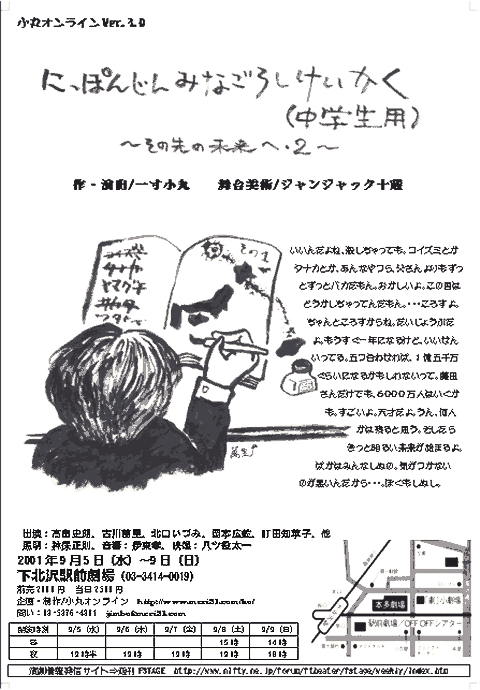 小丸オンラインVer.3.0
にっぽんじんみなごろしけいかく
(中学生用)
～その先の未来へ・2～
作・演出/一寸小丸　舞台美術/ジャンジャック十蔵
いいんだよね、殺しちゃっても。コイズミとか
タナカとか、あんなやつら、父さんよりもずっ
とずっとバカだもん。おかしいよ。この国は
どうかしちゃってんだもん。・・・ころすよ。
ちゃんところすからね。だいじょうぶだ
よ。もうすぐ一年になるけど、いいせん
いってる。五つ合わせれば、1億五千万
ぐらいになるかもしれないって。藤田
さんだけでも、6000万人はいくか
も。すごいよ。天才だよ。うん。何人
かは残ると思う。そしたら
きっと明るい未来が始まるよ。
ばかはみんなしぬの。気がつかない
のが悪いんだから・・・。ぼくもしぬし。
その1
出演：高畠史朗、古川　北口いづみ、岡本広毅、町田知草子、他
照明：　正則、音響：伊東孝、映像：八ツ橋太一
2001年9月5日（水）～9日（日）
下北沢駅前劇場（03-3414-0019）
前売2000円　当日2500円
企画・制作/小丸オンライン
問い：03-5376-4301
本多劇場
駅前劇場／OFFOFFシアター
開演時刻　9/5（水）　9/6（木）　9/7（金）　9/8（土）　9/9（日）
昼　15時　14時
夜　19時半　19時　19時　19時　18時
FSTAGE　http://www.nifty.ne.jp/forum/ftheater/fstage/weekly/index.htm